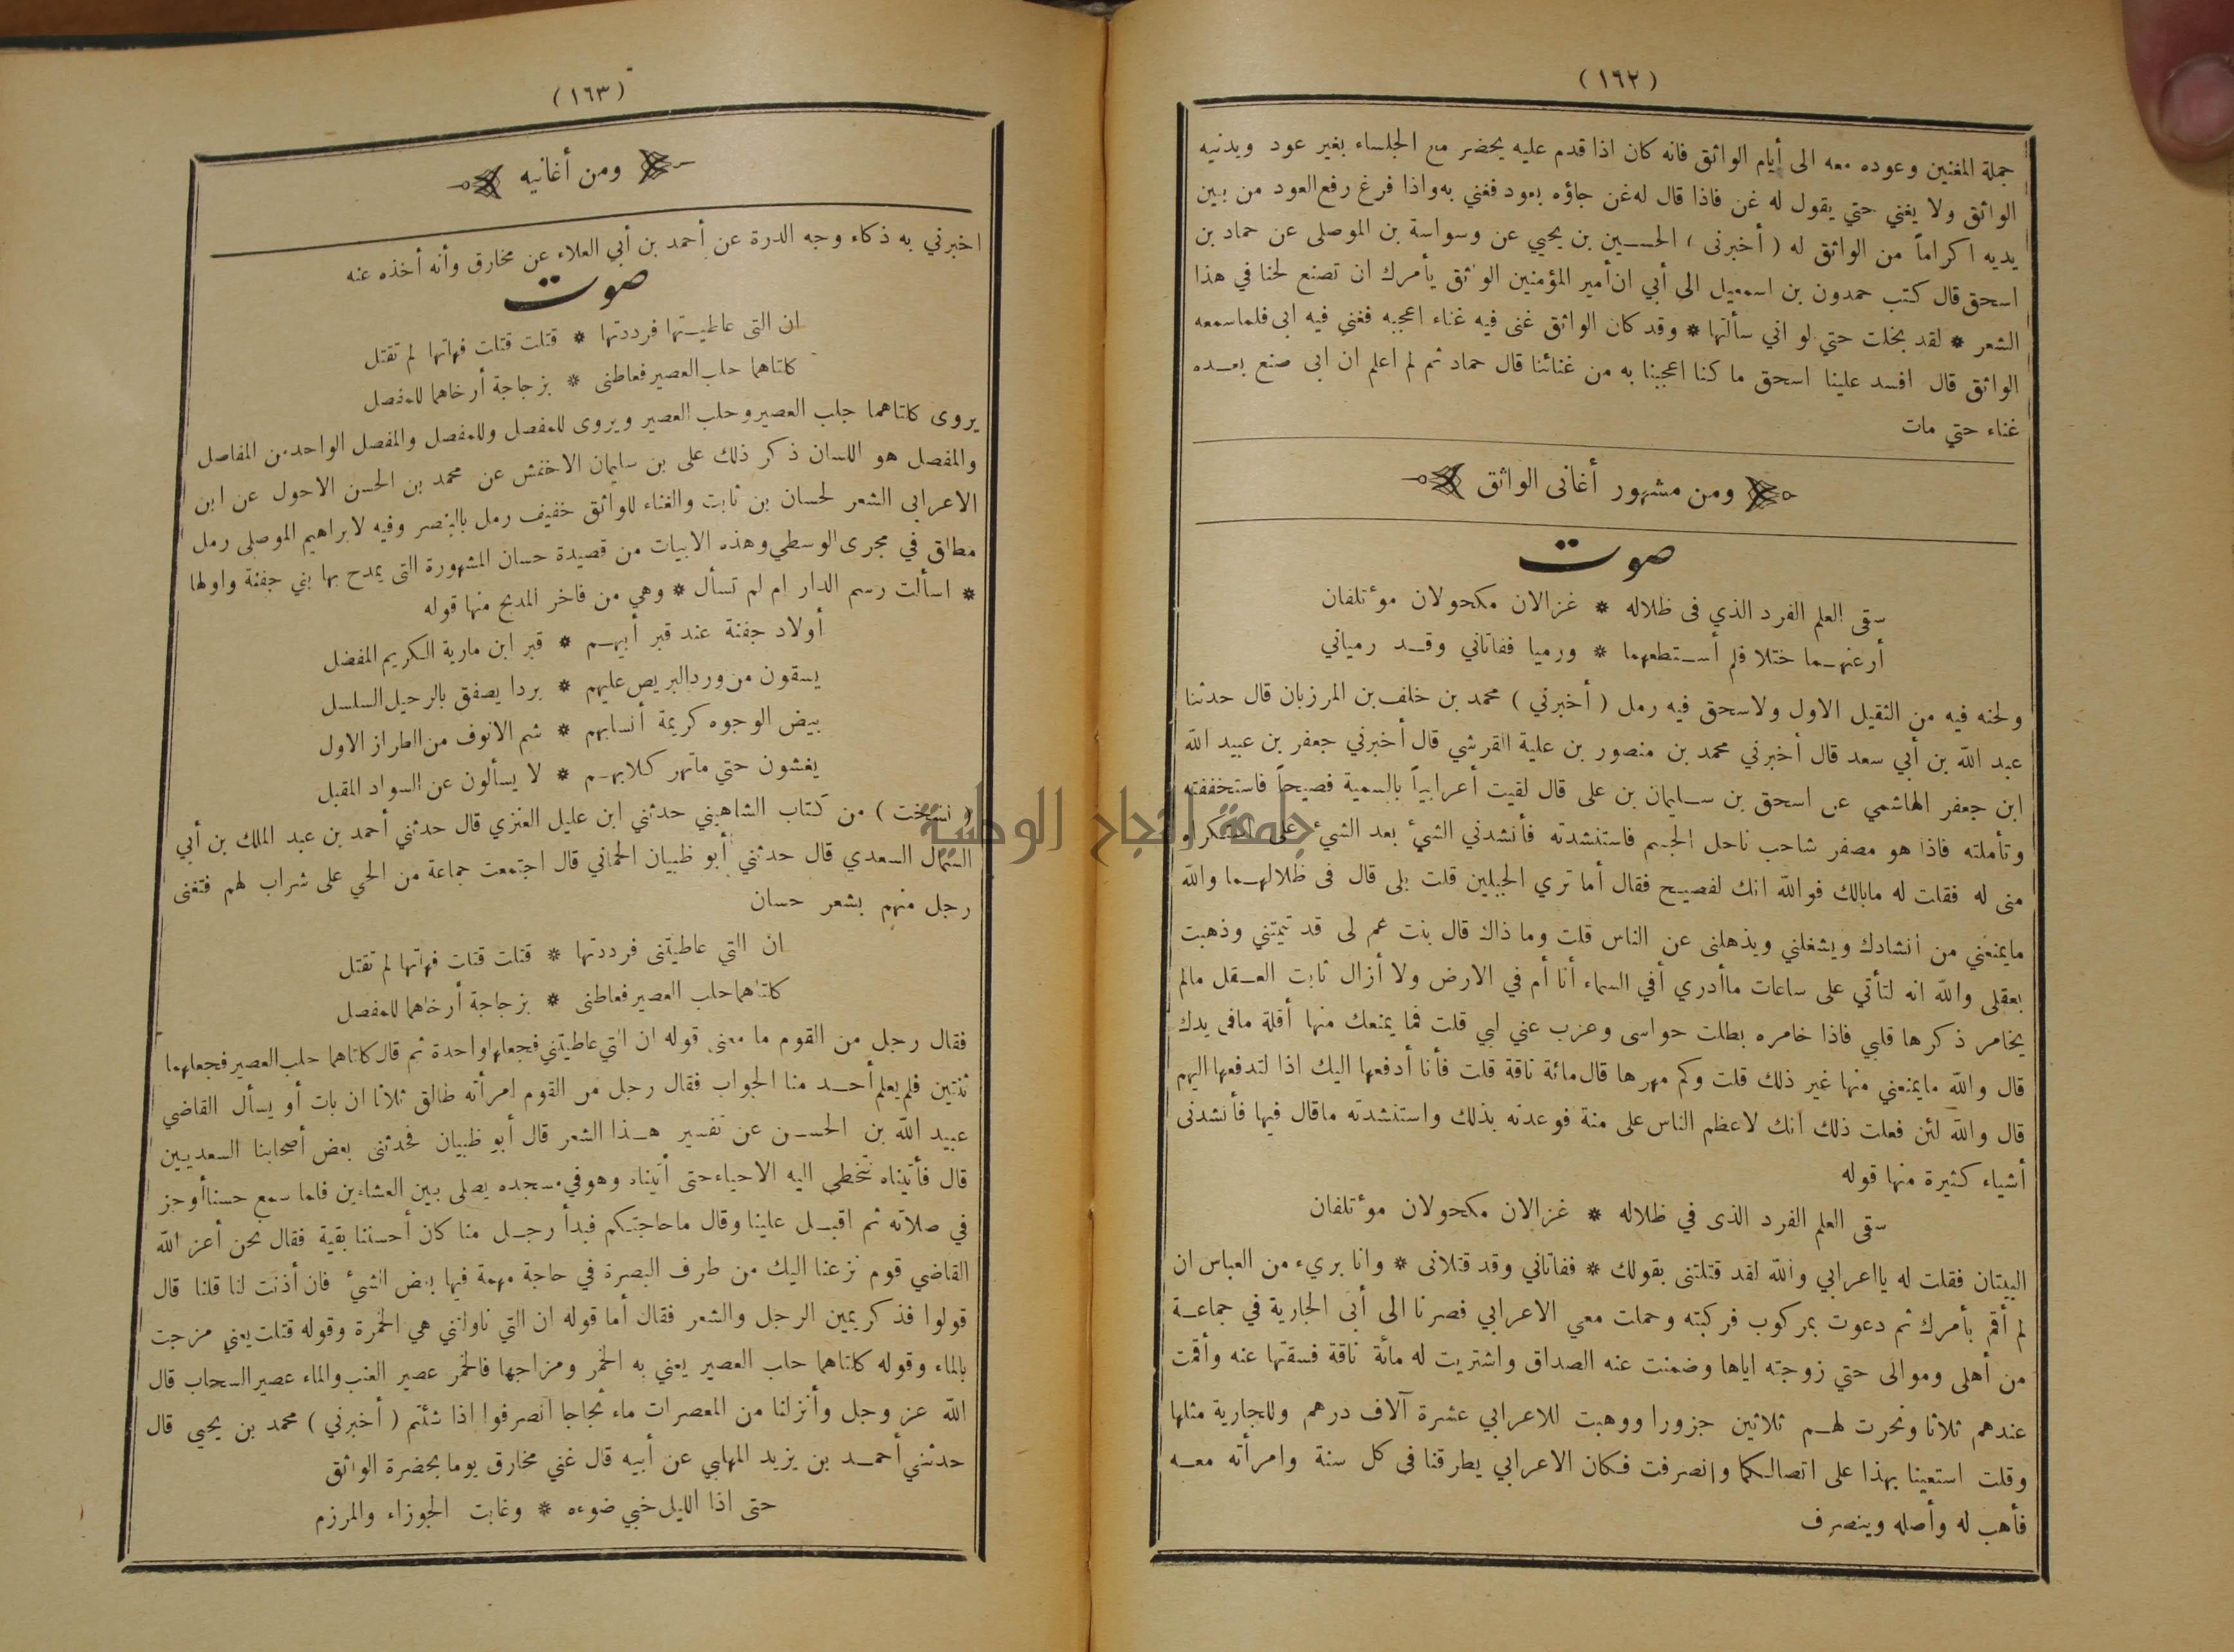 (١٦٢)
جملة المغنين وعوده معه الى أيام الواثق فانه كان اذا قدم عليه يحضر مع الجلساء بغير عود ويدنيه
الواثق ولا يغني حتي يقول له غن فاذا قال له غن جاؤه بعود فغني به واذا فرغ رفع العود من بين
يديه اكراماً من الواثق له ( أخبرنى ) الحسين بن يحيي عن وسواسة بن الموصلى عن حماد بن
اسحق قال كتب حمدون بن اسمعيل الى أبي ان أمير المؤمنين الواثق يأمرك ان تصنع لحنا في هذا
الشعر * لقد بخلت حتي لو اني سألتها * وقد كان الواثق غنى فيه غناء اعجبه فغني فيه ابى فلما سمعه
الواثق قال افسد علينا اسحق ما كنا اعجبنا به من غنائنا قال حماد ثم لم اعلم ان ابى صنع بعده
غناء حتي مات
ومن مشهور أغانى الواثق
صوت
سقى العلم الفرد الذي فى ظلاله * غزالان مكحولان موءتلفان
أرعنهما ختلا فلم أستطعهما * ورميا ففاتاني وقد رمياني
ولحنه فيه من الثقيل الاول ولاسحق فيه رمل ( أخبرني ) محمد بن خلف بن المرزبان قال حدثنا
عبد الله بن أبي سعد قال أخبرني محمد بن منصور بن علية القرشي قال أخبرني جعفر بن عبيد الله
ابن جعفر الهاشمي عن اسحق بن سليمان بن على قال لقيت أعرابياً بالسمية فصيحاً فاستخففته
وتأملته فاذا هو مصفر شاحب ناحل الجسم فاستنشدته فأنشدني الشيء بعد الشيء على استكراه
منى له فقلت له مابالك فوالله انك لفصيح فقال أما تري الجبلين قلت بلى قال فى ظلالهما والله
مايمنعني من انشادك ويشغلني ويذهلنى عن الناس قلت وما ذاك قال بنت عم لى قد تيمتني وذهبت
بعقلى والله انه لتأتي على ساعات ماأدري أفي السماء أنا أم في الارض ولا أزال ثابت العقل مالم
يخامر ذكرها قلبي فاذا خامره بطلت حواسى وعزب عني لبي قلت فما يمنعك منها أقلة مافى يدك
قال والله مايمنعني منها غير ذلك قلت وكم مهرها قال مائة ناقة قلت فأنا أدفعها اليك اذا لتدفعها اليهم
قال والله لئن فعلت ذلك انك لاعظم الناس على منة فوعدته بذلك واستنشدته ماقال فيها فأنشدنى
أشياء كثيرة منها قوله
سقى العلم الفرد الذى في ظلاله * غزالان مكحولان موءتلفان
البيتان فقلت له يااعرابي والله لقد قتلتنى بقولك * ففاتاني وقد قتلانى * وانا بريء من العباس ان
لم أقم بأمرك ثم دعوت بمركوب فركبته وحملت معي الاعرابي فصرنا الى أبى الجارية في جماعة
من أهلى وموالى حتي زوجته اياها وضمنت عنه الصداق واشتريت له مائة ناقة فسقتها عنه وأقمت
عندهم ثلاثا ونحرت لهم ثلاثين جزورا ووهبت للاعرابي عشرة آلاف درهم وللجارية مثلها
وقلت استعينا بهذا على اتصالكما وانصرفت فكان الاعرابي يطرقنا فى كل سنة وامرأته معه
فأهب له وأصله وينصرف
(١٦٣)
ومن أغانيه
اخبرني به ذكاء وجه الدرة عن أحمد بن أبي العلاء عن مخارق وأنه أخذه عنه
صوت
ان التى عاطيتها فرددتها * قتلت قتلت فهاتها لم تقتل
كلتاهما حلب العصير فعاطنى * بزجاجة أرخاهما للمفصل
يروى كلتاهما جلب العصير وحلب العصير ويروى للمفصل وللمفصل والمفصل الواحد من المفاصل
والمفصل هو اللسان ذكر ذلك على بن سليمان الاخفش عن محمد بن الحسن الاحول عن ابن
الاعرابي الشعر لحسان بن ثابت والغناء للواثق خفيف رمل بالبنصر وفيه لابراهيم الموصلى رمل
مطلق في مجرى الوسطي وهذه الابيات من قصيدة حسان المشهورة التى يمدح بها بني جفنة واولها
* اسألت رسم الدار ام لم تسأل * وهي من فاخر المديح منها قوله
أولاد جفنة عند قبر أبيهم * قبر ابن مارية الكريم المفضل
يسقون من ورد البريص عليهم * بردا يصفق بالرحيل السلسل
بيض الوجوه كريمة أنسابهم * شم الانوف من الطراز الاول
يغشون حتي ماتهر كلابهم * لا يسألون عن السواد المقبل
( نسخت ) من كتاب الشاهيني حدثني ابن عليل العنزي قال حدثني أحمد بن عبد الملك بن أبي
السمال السعدي قال حدثني أبو ظبيان الحماني قال اجتمعت جماعة من الحي على شراب لهم فتغنى
رجل منهم بشعر حسان
ان التي عاطيتنى فرددتها * قتلت قتلت فهاتها لم تقتل
كلتاهما حلب العصير فعاطنى * بزجاجة أرخاهما للمفصل
فقال رجل من القوم ما معنى قوله ان التي عاطيتني فجعلها واحدة ثم قال كلتاهما حلب العصير فجعلهما
ثنتين فلم يعلم أحد منا الجواب فقال رجل من القوم امرأته طالق ثلاثا ان بات أو يسأل القاضي
عبيد الله بن الحسن عن تفسير هذا الشعر قال أبو ظبيان فحدثنى بعض أصحابنا السعديين
قال فأتيناه نتخطى اليه الاحياء حتى أتيناه وهو في مسجده يصلى بين العشاءين فلما سمع حسنا أوجز
في صلاته ثم اقبل علينا وقال ماحاجتكم فبدأ رجل منا كان أحسننا بقية فقال نحن أعز الله
القاضي قوم نزعنا اليك من طرف البصرة في حاجة مهمة فيها بعض الشيء فان أذنت لنا قلنا قال
قولوا فذكر يمين الرجل والشعر فقال أما قوله ان التي ناولتني هي الخمرة وقوله قتلت يعني مزجت
بالماء وقوله كلتاهما حلب العصير يعني به الخمر ومزاجها فالخمر عصير العنب والماء عصير السحاب قال
الله عز وجل وأنزلنا من المعصرات ماء ثجاجا انصرفوا اذا شئتم ( أخبرني ) محمد بن يحيي قال
حدثني أحمد بن يزيد المهلبي عن أبيه قال غني مخارق يوما بحضرة الواثق
حتى اذا الليل خبي ضوءه * وغابت الجوزاء والمرزم
جامعة النجاح الوطنية